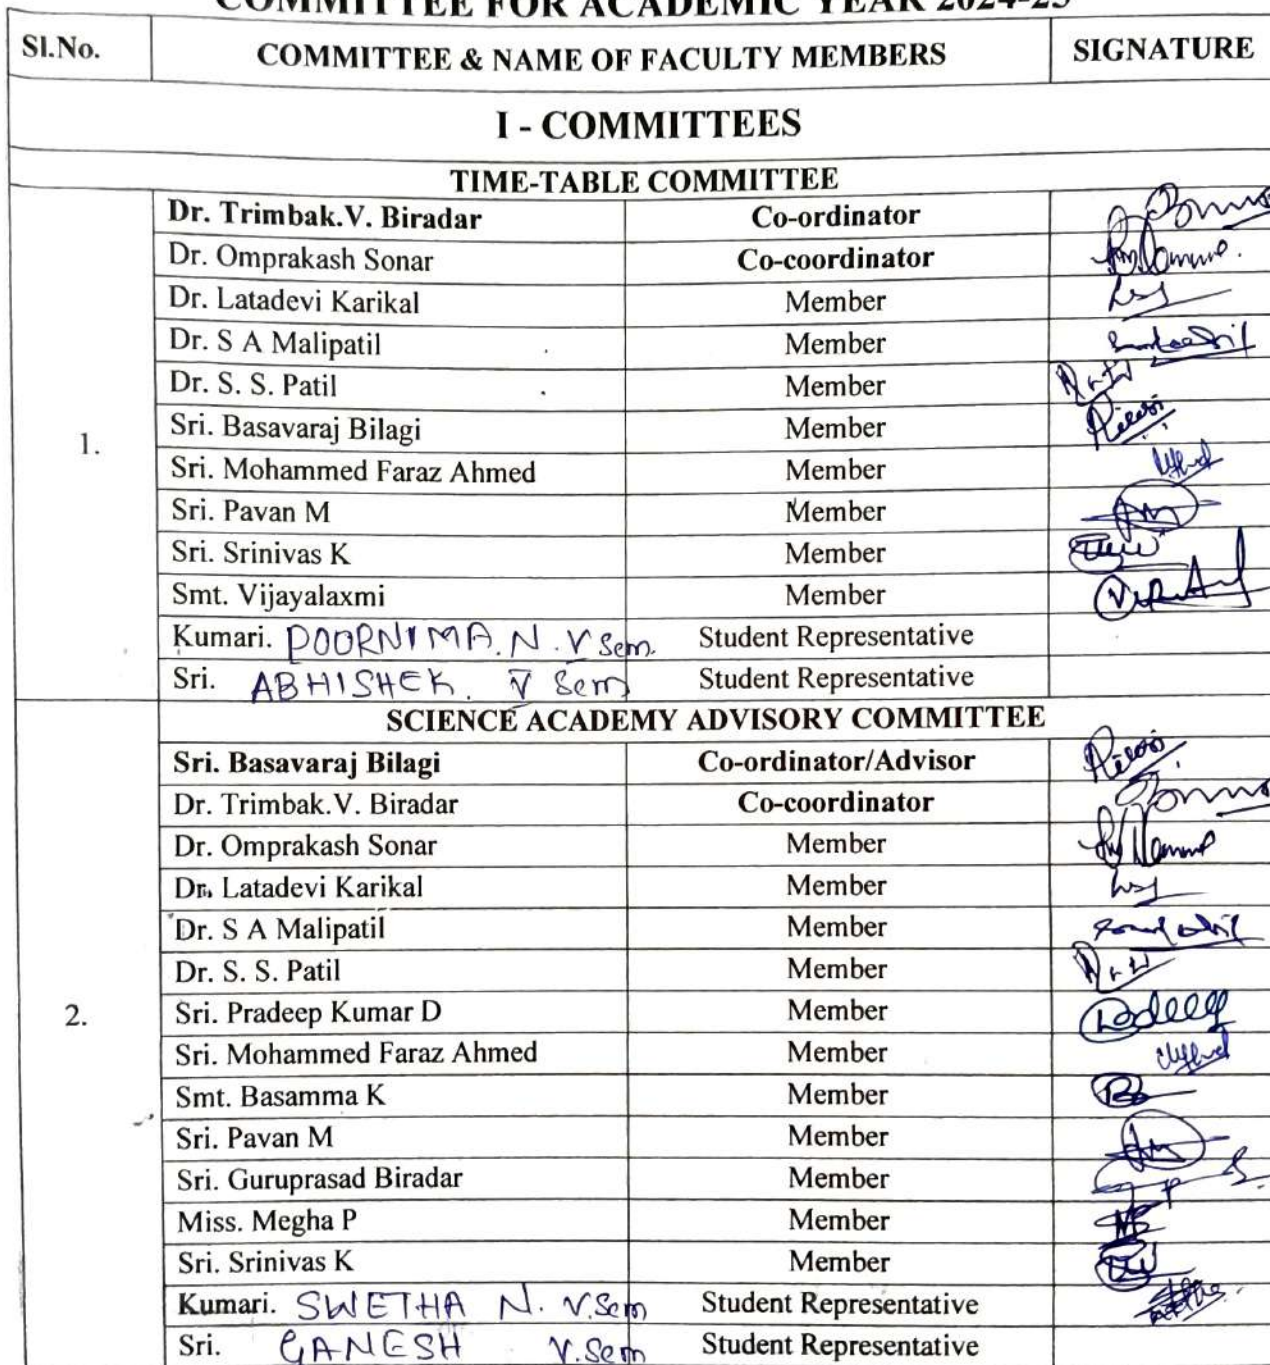 COMMITTEE FOR ACADEMIC YEAR 2024-25
Sl.No. COMMITTEE & NAME OF FACULTY MEMBERS SIGNATURE
I - COMMITTEES
TIME-TABLE COMMITTEE
Dr. Trimbak.V. Biradar Co-ordinator
Dr. Omprakash Sonar Co-coordinator
Dr. Latadevi Karikal Member
Dr. S A Malipatil Member
Dr. S. S. Patil Member
1. Sri. Basavaraj Bilagi Member
Sri. Mohammed Faraz Ahmed Member
Sri. Pavan M Member
Sri. Srinivas K Member
Smt. Vijayalaxmi Member
Kumari. POORNIMA. N. V Sem. Student Representative
Sri. ABHISHEK. V Sem Student Representative
SCIENCE ACADEMY ADVISORY COMMITTEE
Sri. Basavaraj Bilagi Co-ordinator/Advisor
Dr. Trimbak.V. Biradar Co-coordinator
Dr. Omprakash Sonar Member
Dr. Latadevi Karikal Member
Dr. S A Malipatil Member
Dr. S. S. Patil Member
2. Sri. Pradeep Kumar D Member
Sri. Mohammed Faraz Ahmed Member
Smt. Basamma K Member
Sri. Pavan M Member
Sri. Guruprasad Biradar Member
Miss. Megha P Member
Sri. Srinivas K Member
Kumari. SWETHA N. V.Sem Student Representative
Sri. GANESH V.Sem Student Representative